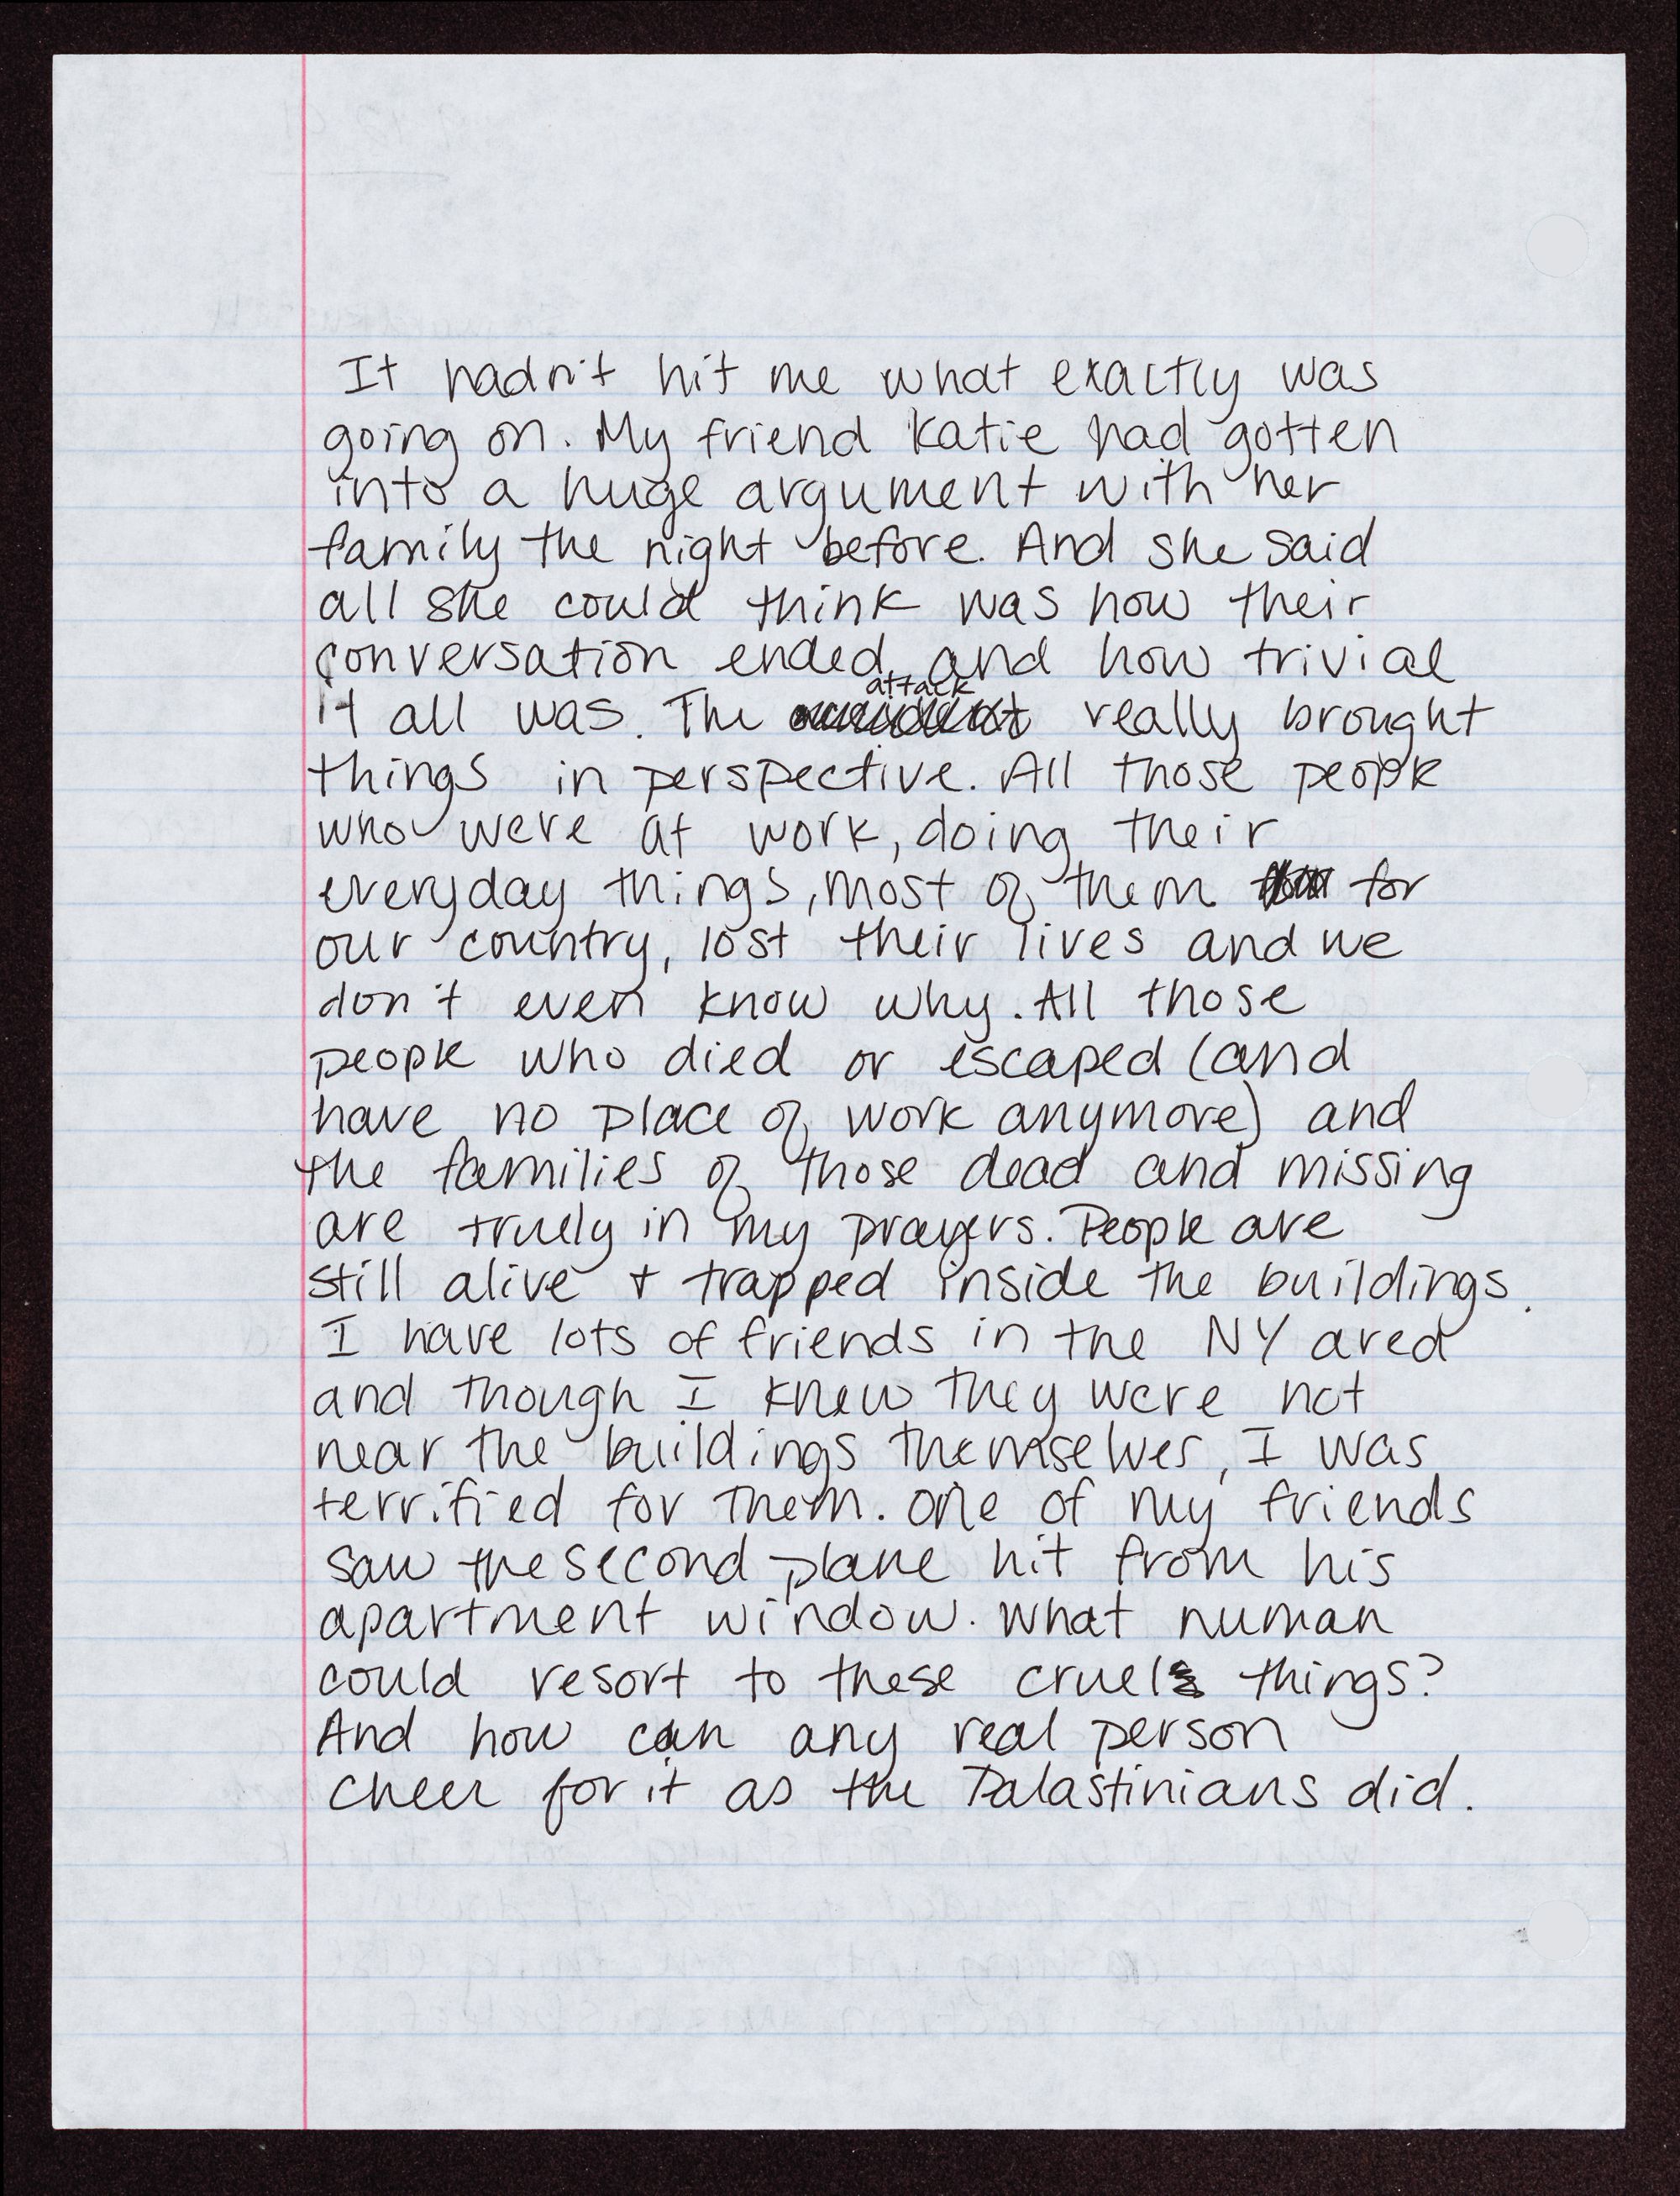 It hadn't hit me what exactly was
going on. My friend Katie had gotten
into a huge argument with her
family the night before. And she said
all she could think was how their
conversation ended, and how trivial
it all was. The attack really brought
things in perspective. All those people
who were at work, doing their
everyday things, most of them for
our country, lost their lives and we
don't even know why. All those
people who died or escaped (and
have no place of work anymore) and
the families of those dead and missing
are truely in my prayers. People are
still alive + trapped inside the buildings.
I have lots of friends in the NY area
and though I knew they were not
near the buildings themselves, I was
terrified for them. One of my friends
saw the second plane hit from his
apartment window. What human
could resort to these cruel things?
And how can any real person
cheer for it as the Palastinians did.